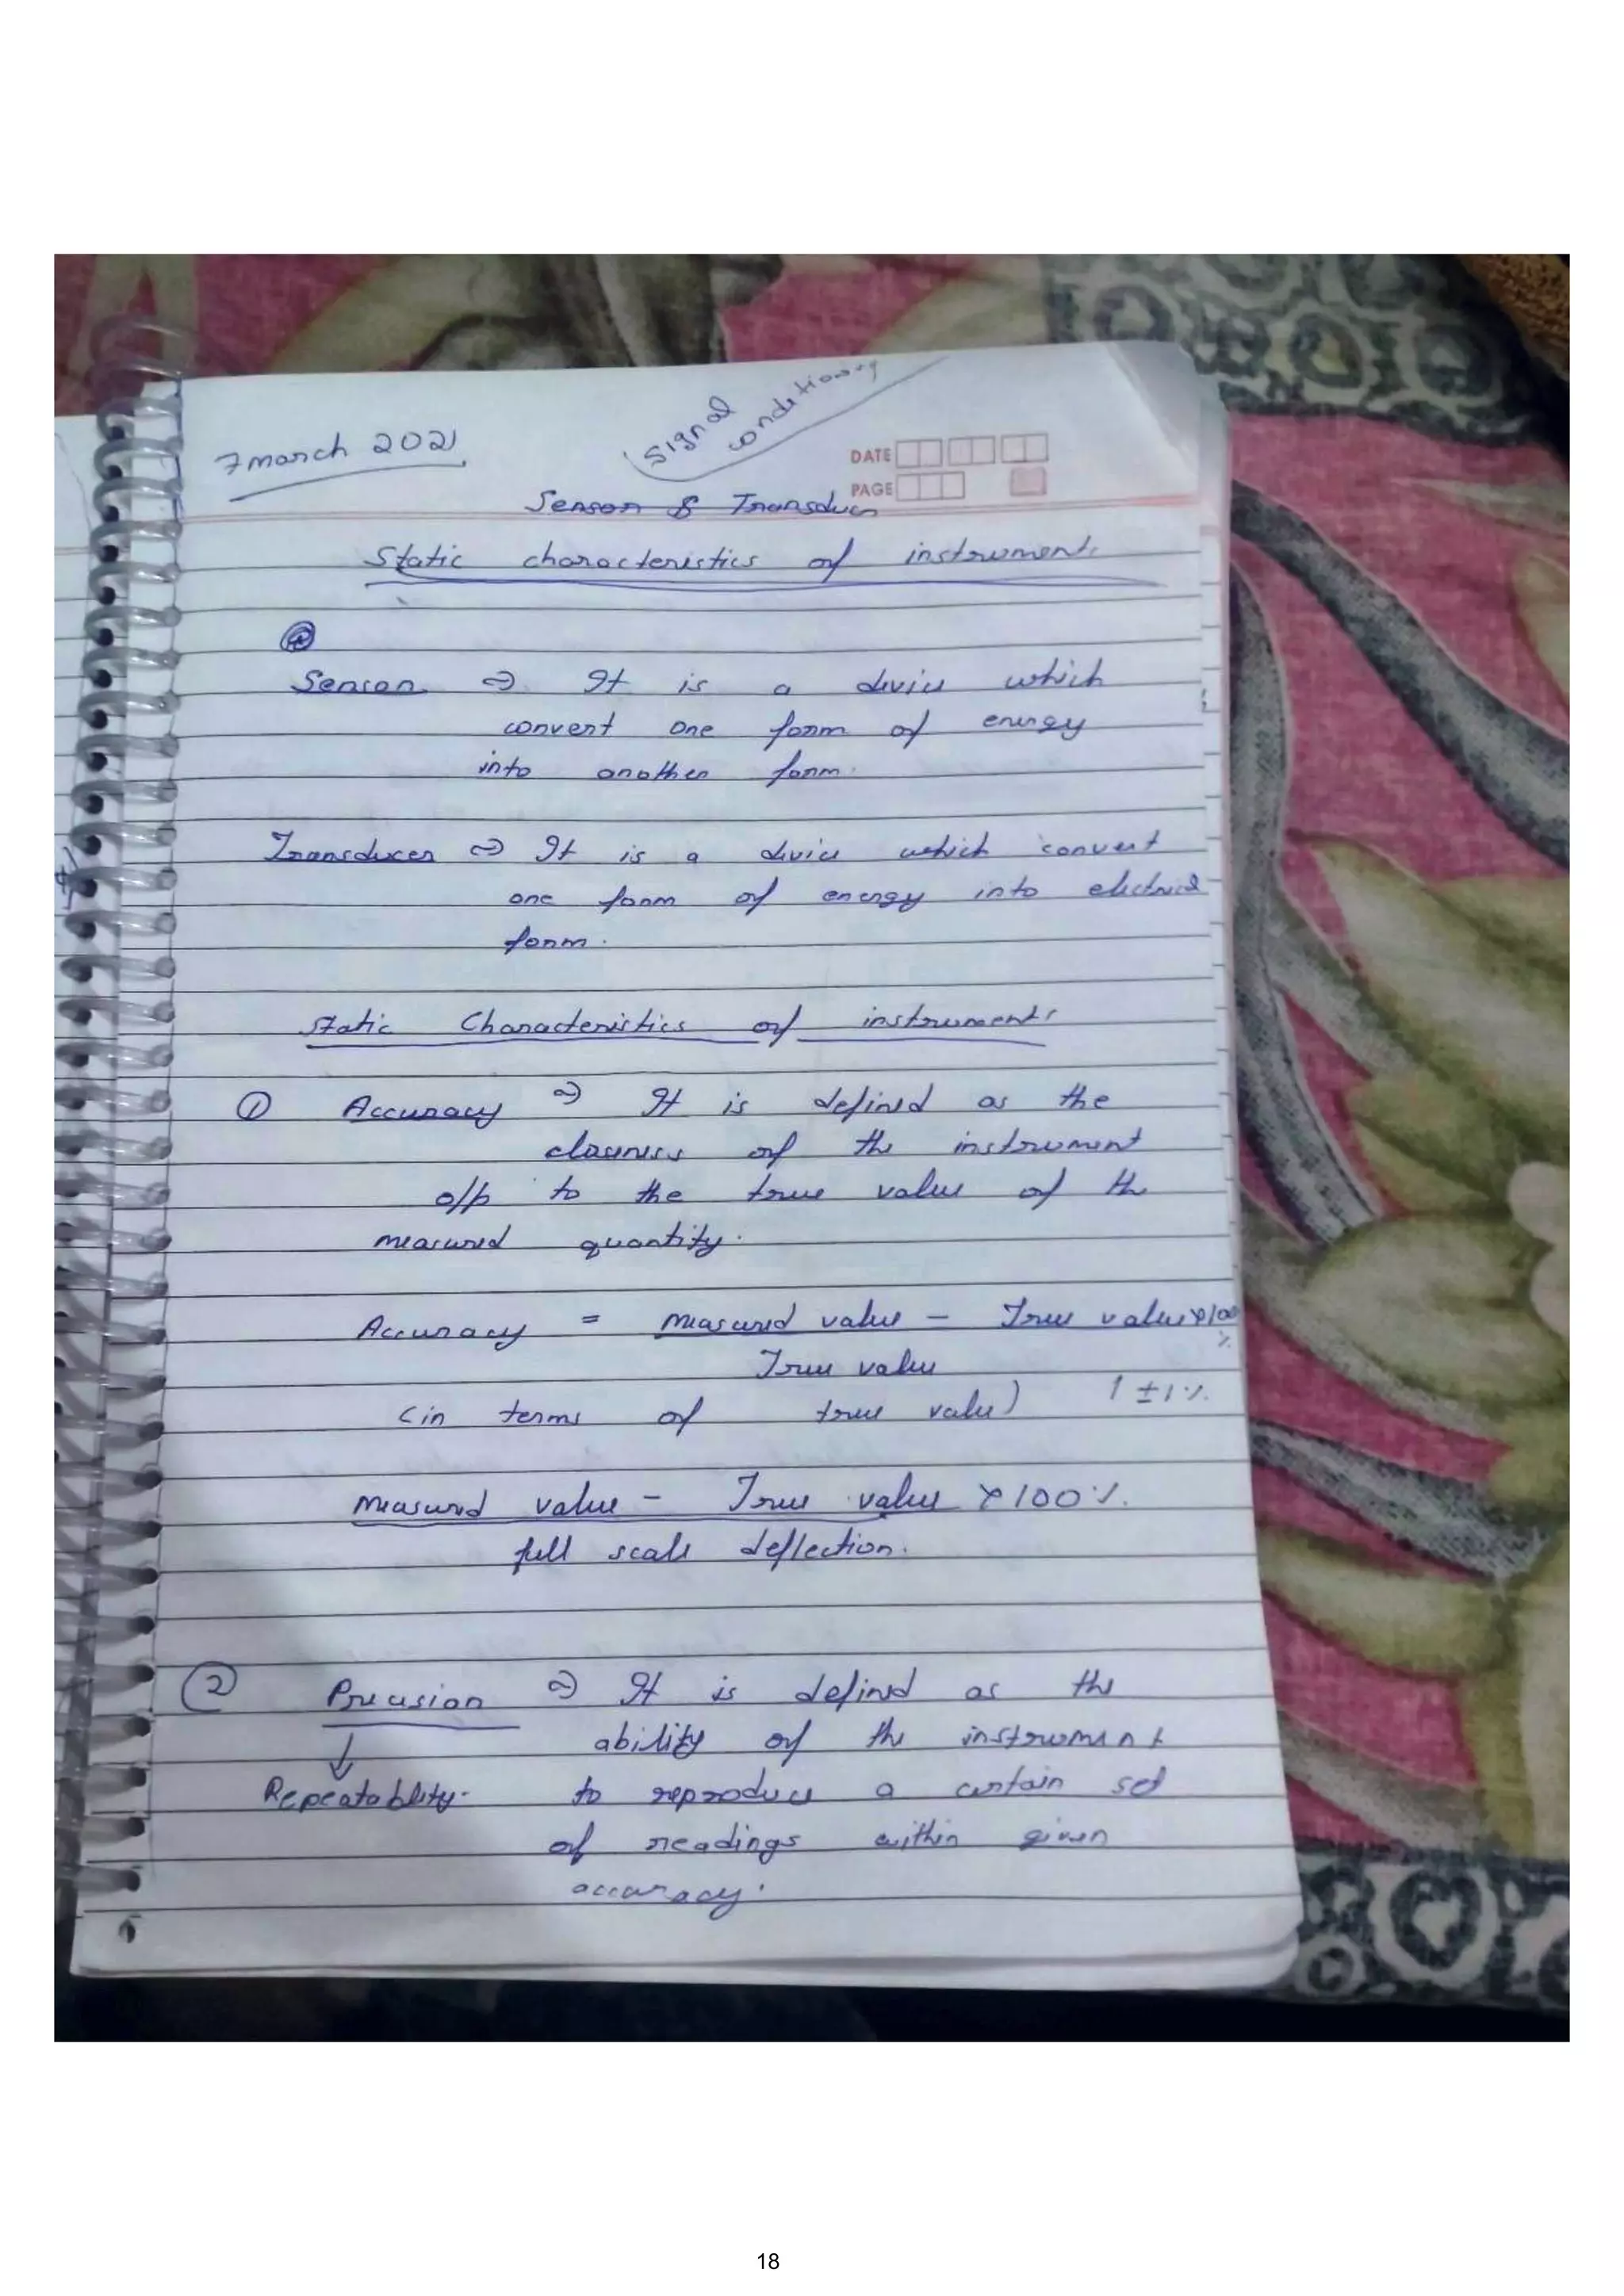 7 march 2021
Signal
conditioning
DATE
PAGE
Sensor & Transducer
Static characteristics of instruments
Sensor ⇒ It is a device which
convert one form of energy
into another form.
Transducer ⇒ It is a device which convert
one form of energy into electrical
form.
Static Characteristics of instruments
① Accuracy ⇒ It is defined as the
closeness of the instrument
o/p to the true value of the
measured quantity.
Accuracy = measured value - True value × 100
%
True value
(in terms of true value) ±1%
measured value - True value × 100%.
full scale deflection.
② Precision ⇒ It is defined as the
ability of the instrument
↓
Repeatablity. to reproduce a certain set
of readings within given
accuracy.
18